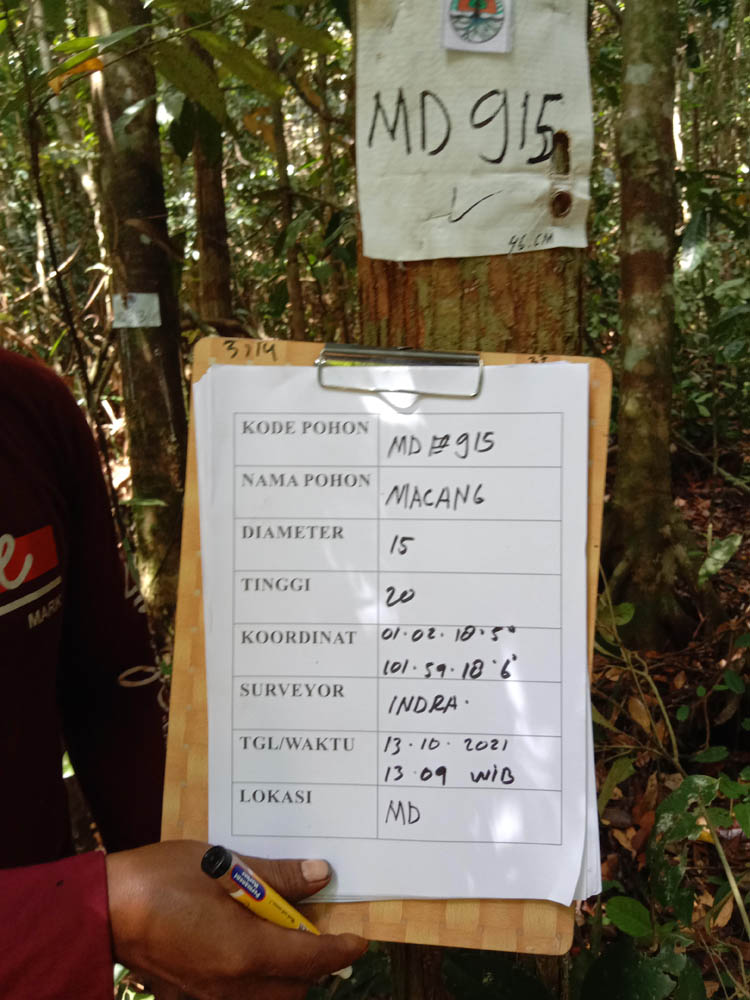 MD 915
46 CM
KODE POHON MD 915
NAMA POHON MACANG
DIAMETER 15
TINGGI 20
KOORDINAT 01·02·18·5"
101·59·18·6"
SURVEYOR INDRA·
TGL/WAKTU 13·10·2021
13·09 WIB
LOKASI MD